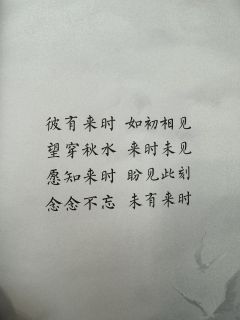 彼有来时 如初相见
望穿秋水 来时未见
愿知来时 盼见此刻
念念不忘 未有来时